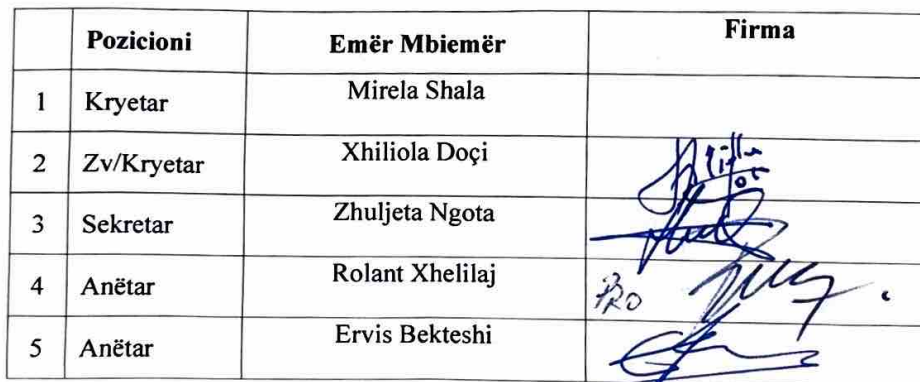 Pozicioni Emër Mbiemër Firma
1 Kryetar Mirela Shala
2 Zv/Kryetar Xhiliola Doçi
3 Sekretar Zhuljeta Ngota
4 Anëtar Rolant Xhelilaj PRO
5 Anëtar Ervis Bekteshi